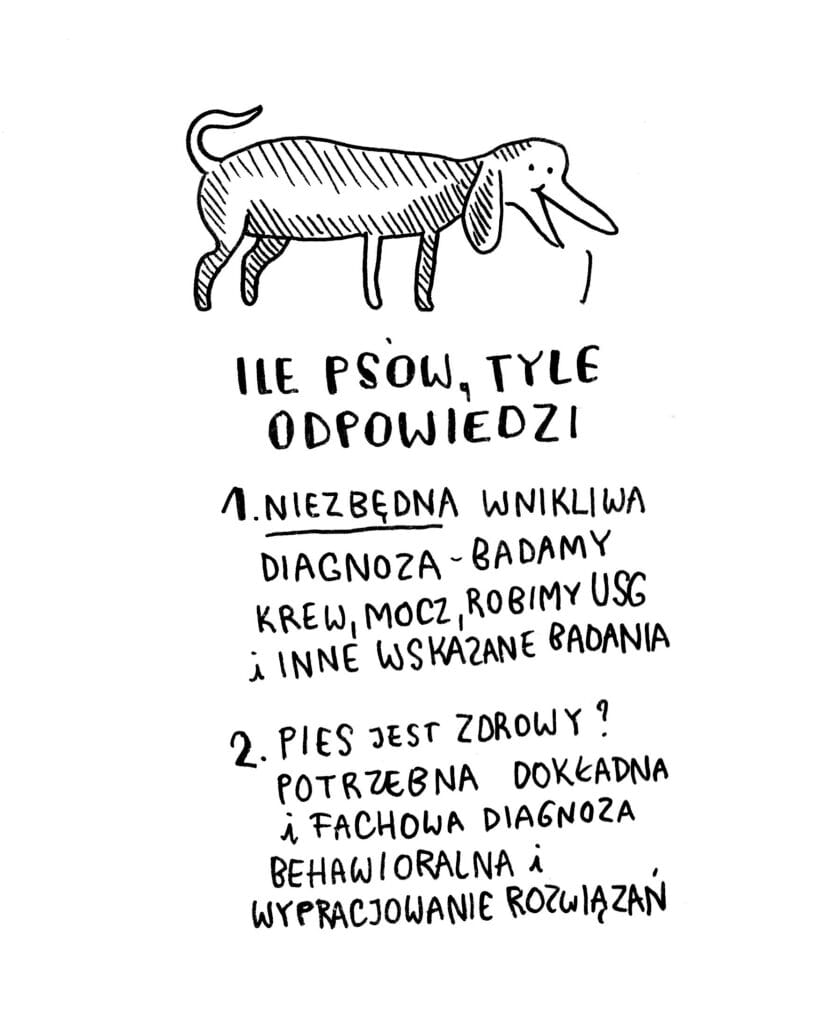 ILE PSÓW, TYLE
ODPOWIEDZI
1. NIEZBĘDNA WNIKLIWA
DIAGNOZA - BADAMY
KREW, MOCZ, ROBIMY USG
i INNE WSKAZANE BADANIA
2. PIES JEST ZDROWY?
POTRZEBNA DOKŁADNA
i FACHOWA DIAGNOZA
BEHAWIORALNA i
WYPRACJOWANIE ROZWIĄZAŃ